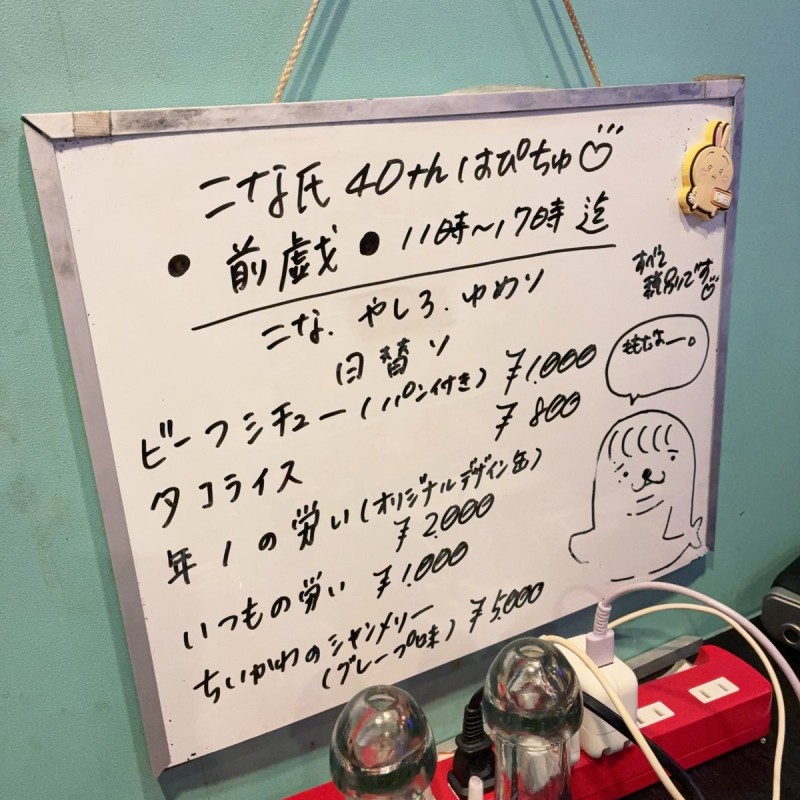 こなな氏 40th はぴちゅ♡
● 前戯 ● 11時〜17時 迄
こな. やしろ. ゆめソ
日替ソ
ビーフシチュー(パン付き) ¥1.000
タコライス ¥800
年1の労い(オリジナルデザイン缶)
¥2.000
いつもの労い ¥1.000
ちいかわのシャンメリー
(グレープ味) ¥5.000
すべて
税別です♡